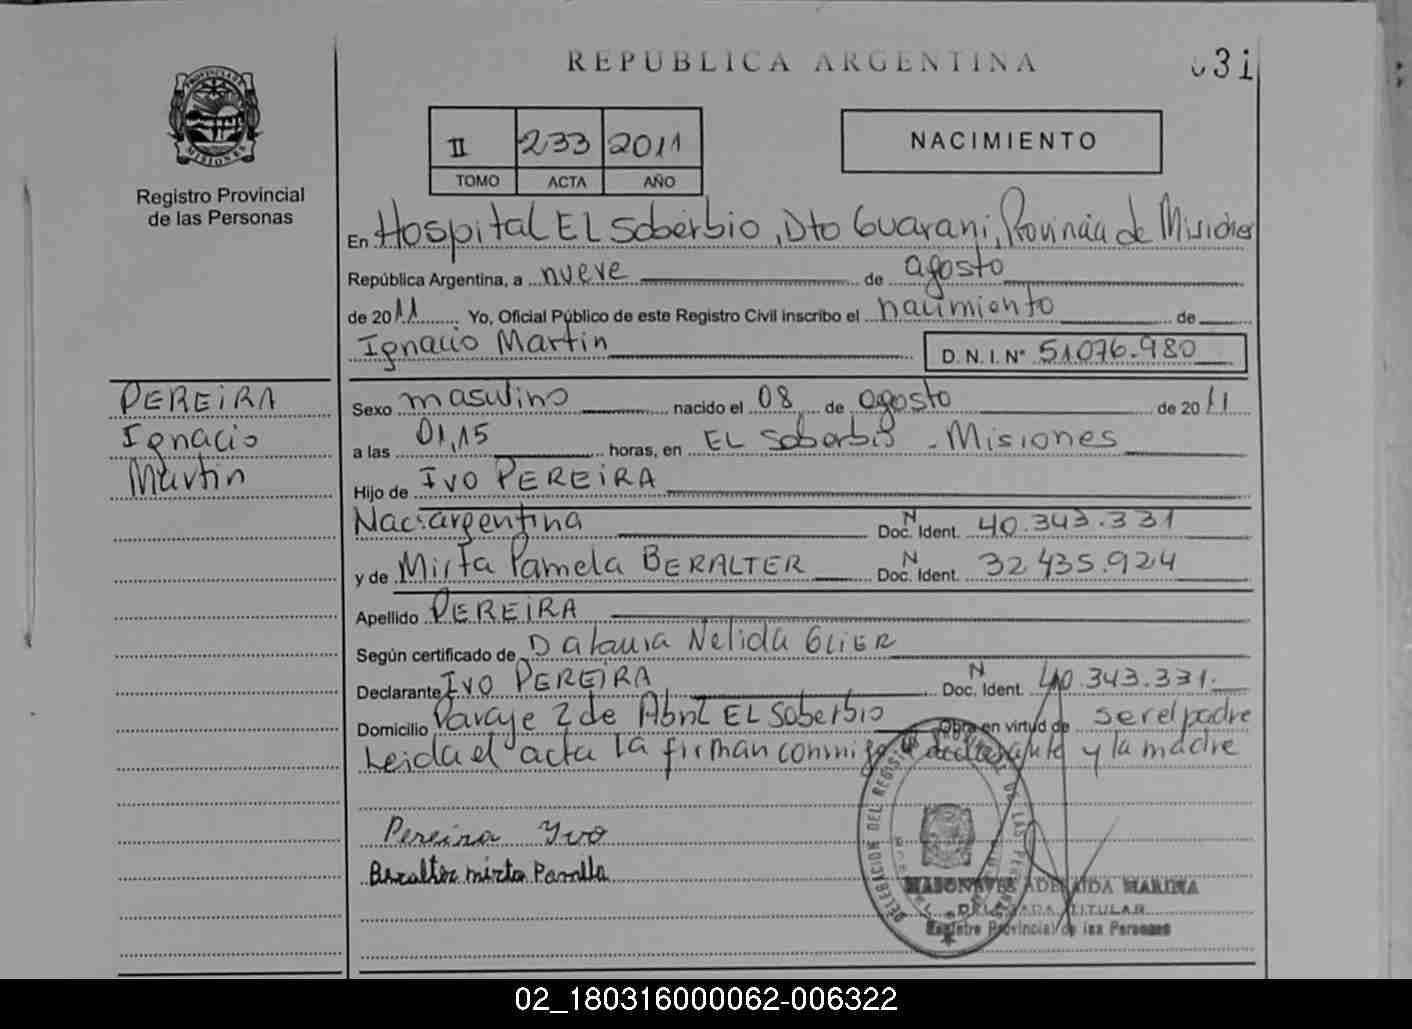 REPUBLICA ARGENTINA
031
PROVINCIA DE
MISIONES
Registro Provincial
de las Personas
II 233 2011
TOMO ACTA AÑO
NACIMIENTO
En Hospital EL Soberbio, Dto Guarani, Provincia de Misiones
República Argentina, a nueve de agosto
de 2011 Yo, Oficial Público de este Registro Civil inscribo el nacimiento de
Ignacio Martin D. N. I. N° 51.076.980
PEREIRA
Ignacio
Martin
Sexo masculino nacido el 08 de agosto de 2011
a las 01,15 horas, en EL Soberbio - Misiones
Hijo de Ivo PEREIRA
Nac: argentina Doc. Ident. N 40.343.331
y de Mirta Pamela BERALTER Doc. Ident. N 32.435.924
Apellido PEREIRA
Según certificado de Nelida GLIER
Declarante Ivo PEREIRA Doc. Ident. N 40.343.331.
Domicilio Paraje 2 de Abril EL Soberbio Obra en virtud de ser el padre
Leida el acta la firman conmigo declarante y la madre
Pereira Yvo
Beralter mirta Pamela
DELEGACION DEL REGISTRO DE LAS PERSONAS
MARINA
DELEGADA TITULAR
Registro Provincial de las Personas
02_180316000062-006322